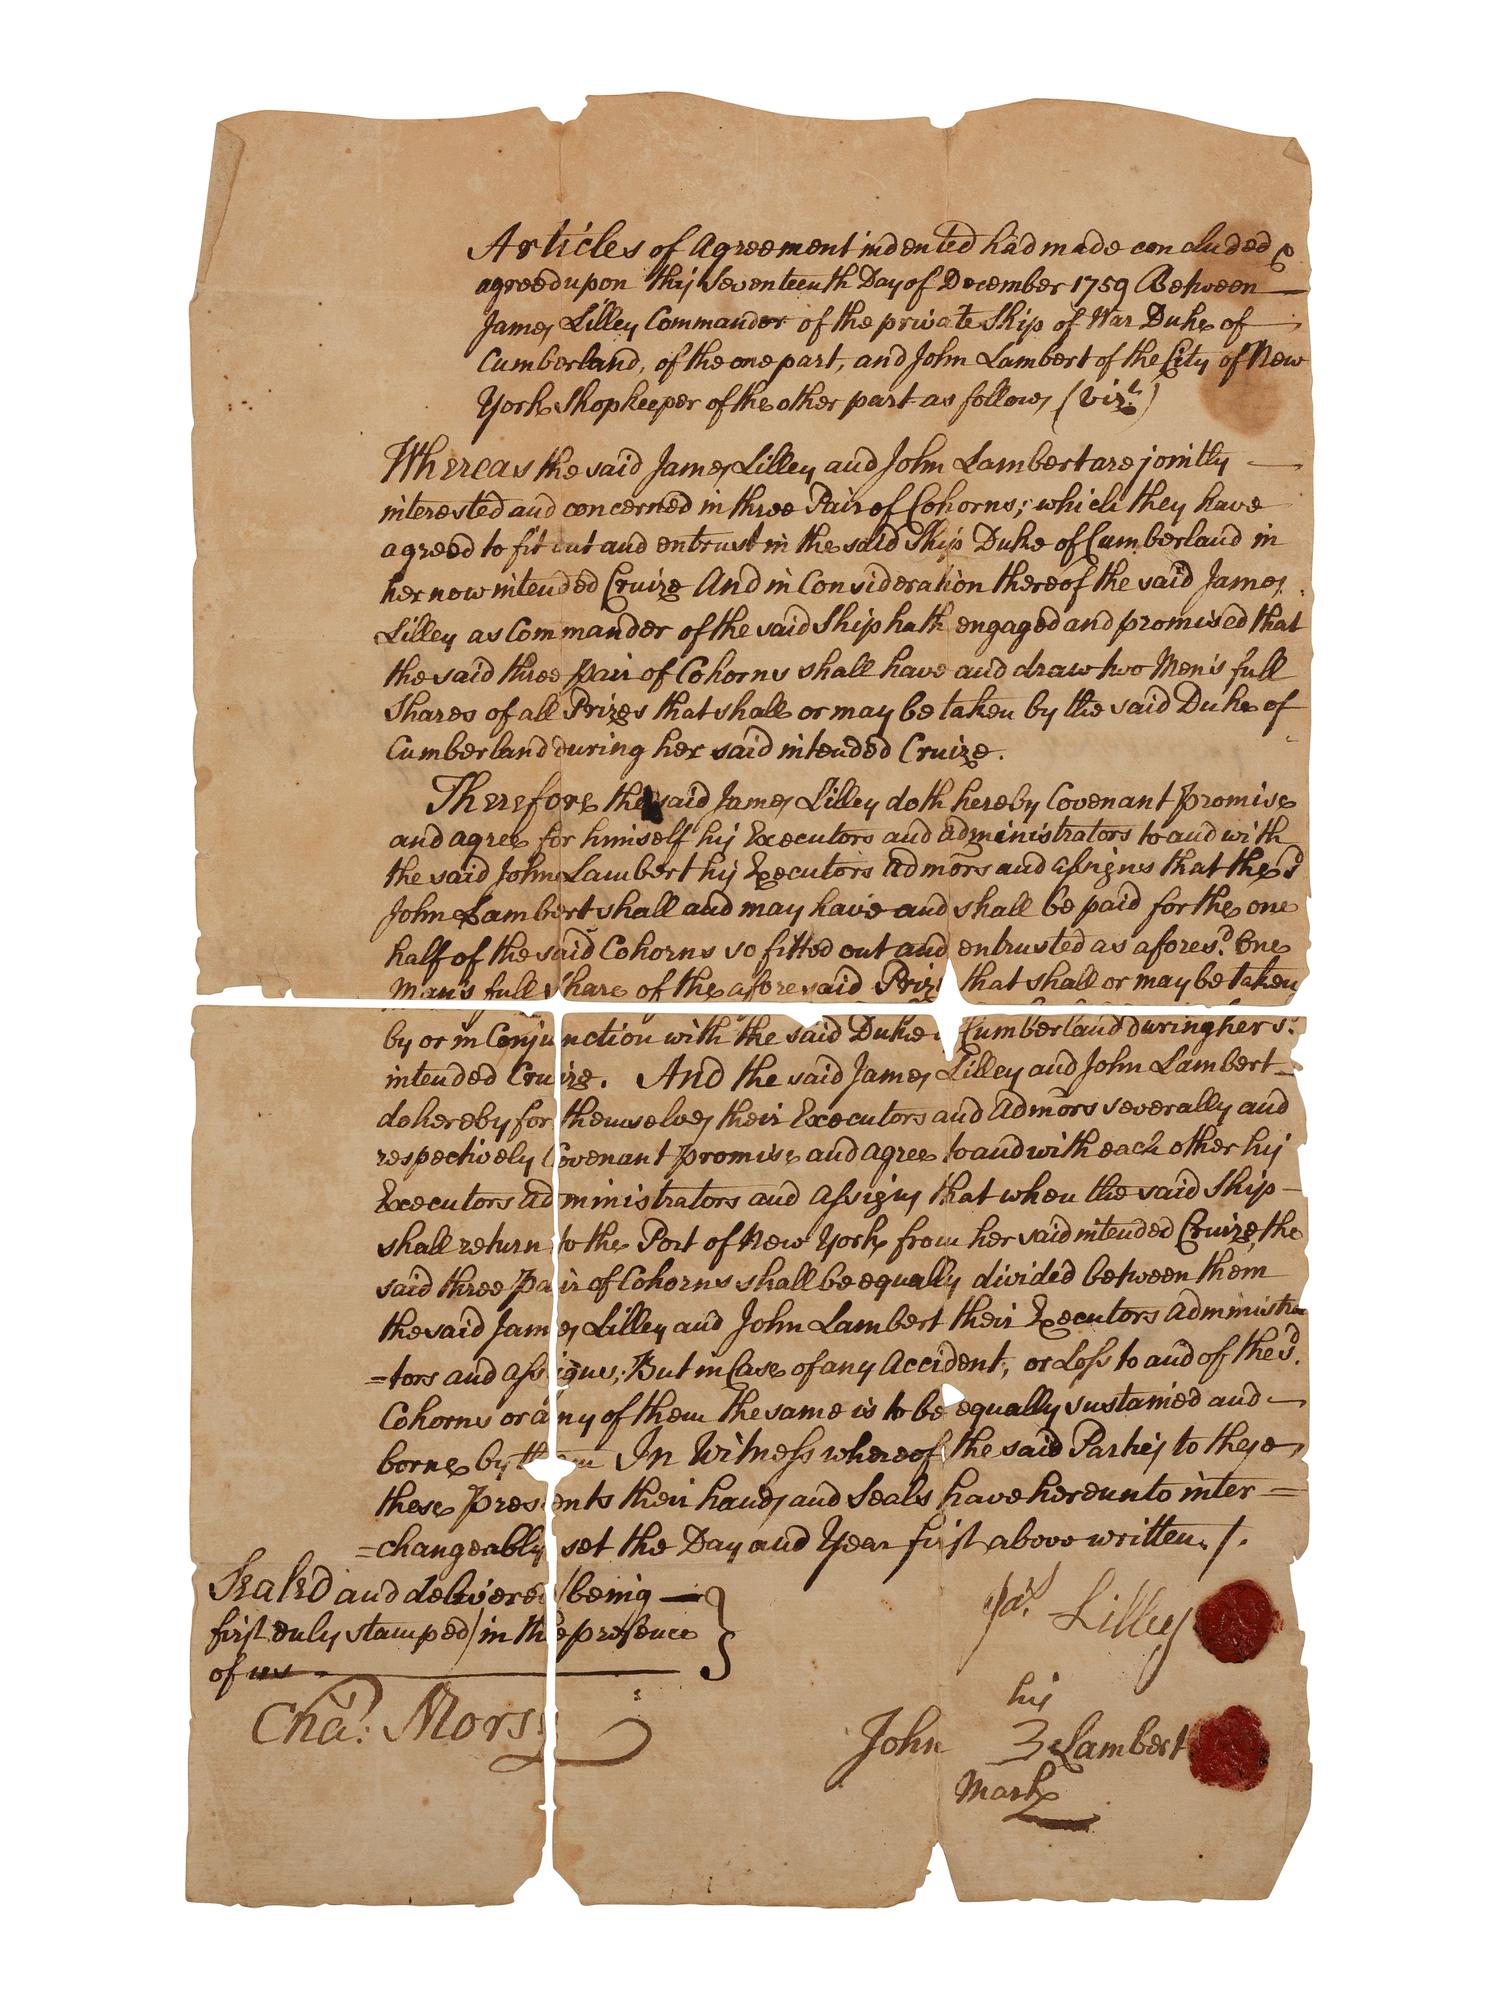 Articles of Agreement indented had made concluded &
agreed upon this Seventeenth Day of December 1759 Between
James Lilley Commander of the private Ship of War Duke of
Cumberland, of the one part, and John Lambert of the City of New
York Shopkeeper of the other part as follows (vizt.)
Whereas the said James Lilley and John Lambert are jointly
interested and concerned in three Pair of Cohorns; which they have
agreed to fit out and entrust in the said Ship Duke of Cumberland in
her now intended Cruize And in Consideration thereof the said James
Lilley as Commander of the said Ship hath engaged and promised that
the said three pair of Cohorns shall have and draw two Men's full
Shares of all Prizes that shall or may be taken by the said Duke of
Cumberland during her said intended Cruize.
Therefore the said James Lilley doth hereby Covenant Promise
and agree for himself his Executors and administrators to and with
the said John Lambert his Executors Admors and assigns that the sd
John Lambert shall and may have and shall be paid for the one
half of the said Cohorns so fitted out and entrusted as aforesd. One
Man's full Share of the aforesaid Priz that shall or may be taken
by or in Conjunction with the said Duke Cumberland during her sd.
intended Cruize. And the said James Lilley and John Lambert
do hereby for themselves their Executors and Admors severally and
respectively Covenant promise and agree to and with each other his
Executors administrators and assigns that when the said Ship
shall return to the Port of New York from her said intended Cruize, the
said three Pair of Cohorns shall be equally divided between them
the said James Lilley and John Lambert their Executors Administra
=tors and assigns; But in Case of any Accident, or Loss to and of the sd.
Cohorns or any of them the same is to be equally sustained and
borne by them In Witness whereof the said Parties to these
these presents their hands and Seals have hereunto inter=
=changeably set the Day and Year first above written /.
Sealed and delivered (being
first duly stamped) in the presence
of us
Chas. Mors
Jas. Lilley
his
John 3 Lambert
Mark